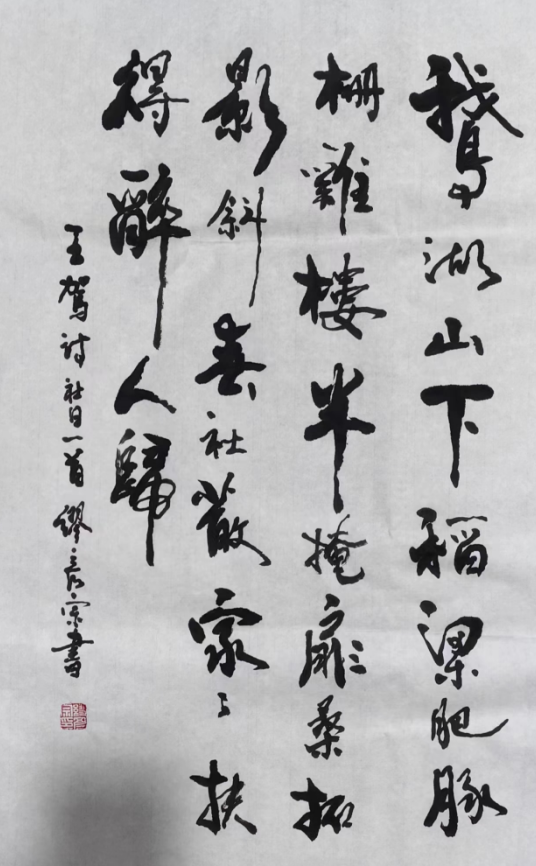 鵝湖山下稻粱肥豚
栅雞樓半掩扉桑拓
影斜春社散家々扶
得醉人歸
王駕詩社日一首繆宗書